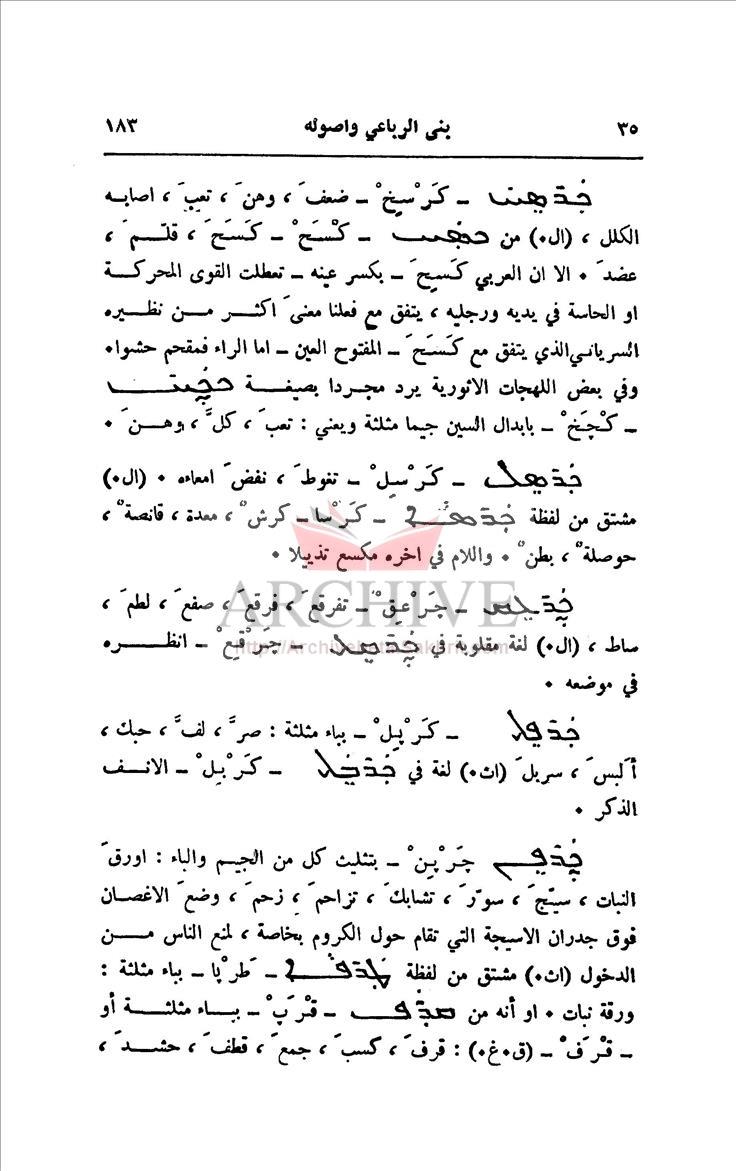 ٣٥ بنى الرباعي واصوله ١٨٣
ܟܲܪܣܸܚ ـ كَرْسِخْ ـ ضعفَ ، وهنَ ، تعبَ ، اصابه
الكلل ، (ال٠) من ܟܣܚ ـ كْسَحْ ـ كَسَحَ ، قلّم َ ،
عضدَ ٠ الا ان العربي كَسِحَ ـ بكسر عينه ـ تعطلت القوى المحركة
او الحاسة في يديه ورجليه ، يتفق مع فعلنا معنىَ اكثر من نظيره
السرياني الذي يتفق مع كَسَحَ ـ المفتوح العين ـ اما الراء فمقحم حشوا٠
وفي بعض اللهجات الاثورية يرد مجردا بصيغة
ـ كْچَخْ ـ بابدال السين جيما مثلثة ويعني : تعبَ ، كلَّ ، وهنَ ٠
ܟܲܪܣܸܠ ـ كَرْسِلْ ـ تغوطَ ، نفضَ امعاءه ٠ (ال٠)
مشتق من لفظة ܟܪܣܐ ـ كَرْسا ـ كرشٌ ، معدة ، قانصةٌ ،
حوصلةٌ ، بطنٌ ٠ واللام في اخره مكسع تذييلا ٠
ARCHIVE
ـ جَرْعِقْ ـ تفرقعَ ، فرقعَ ، صفعَ ، لطمَ ،
http://Archivebeta.Sakhrit.com
صاط ، (ال٠) لغة مقلوبة في ـ جَرْقِعْ ـ انظره
في موضعه ٠
ـ كَرْپِلْ ـ بباء مثلثة : صرَّ ، لفَّ ، حبك ،
ألبسَ ، سربلَ (اث٠) لغة في ܟܲܪܒܸܠ ـ كَرْبِلْ ـ الانف
الذكر ٠
چَرْپِنْ ـ بتثليث كل من الجيم والباء : اورقَ
النبات ، سيّجَ ، سوّرَ ، تشابكَ ، تزاحمَ ، زحمَ ، وضعَ الاغصان
فوق جدران الاسيجة التي تقام حول الكروم بخاصة ، لمنع الناس من
الدخول (اث٠) مشتق من لفظة ܛܪܦܐ ـ طرْپا ـ بباء مثلثة :
ورقة نبات ٠ او أنه من ـ قْرَپْ ـ بباء مثلثة أو
ـ قْرَفْ ـ (ق٠غ٠) : قرفَ ، كسبَ ، جمعَ ، قطفَ ، حشدَ ،